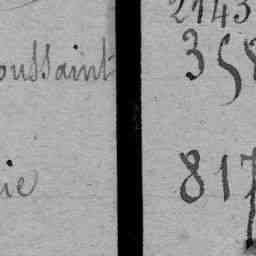 2143
oussaint 358
ie 817